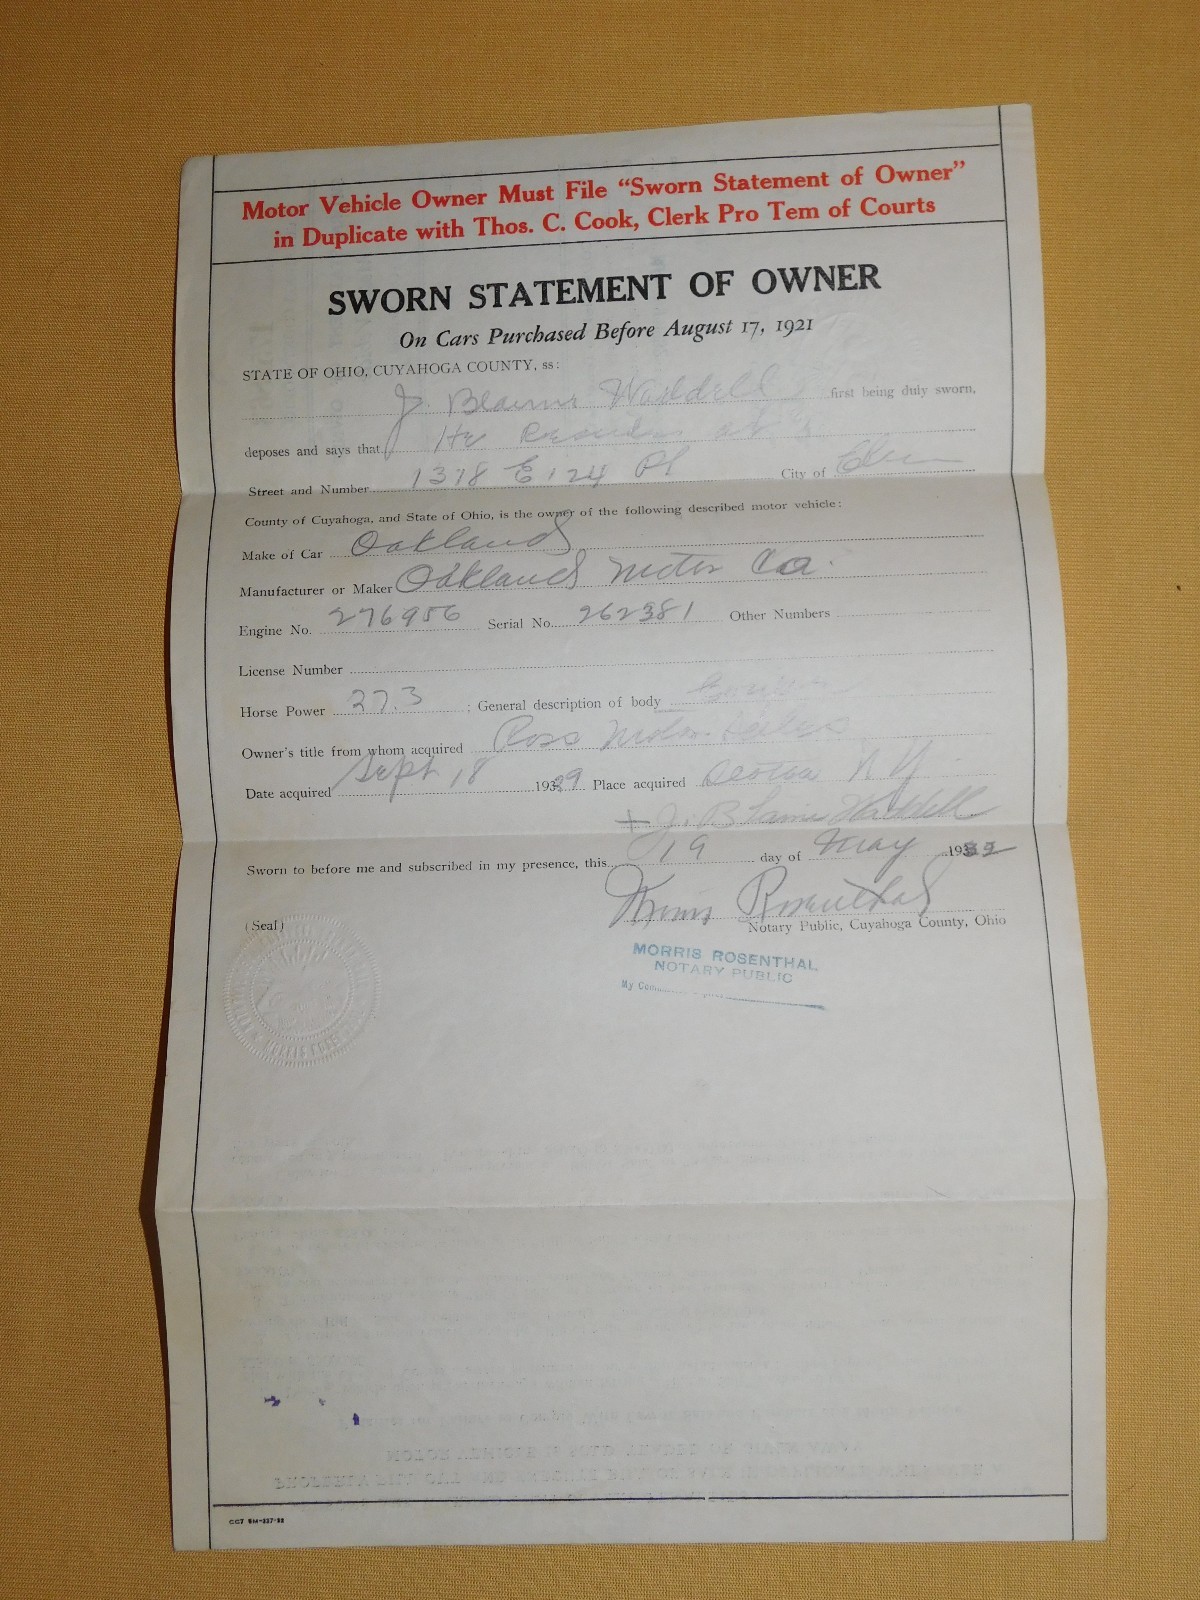 Motor Vehicle Owner Must File “Sworn Statement of Owner”
in Duplicate with Thos. C. Cook, Clerk Pro Tem of Courts
SWORN STATEMENT OF OWNER
On Cars Purchased Before August 17, 1921
STATE OF OHIO, CUYAHOGA COUNTY, ss:
J. Blaine Waddell first being duly sworn,
deposes and says that He Resides at
Street and Number 1378 E 124 Pl City of Cleve
County of Cuyahoga, and State of Ohio, is the owner of the following described motor vehicle:
Make of Car Oakland
Manufacturer or Maker Oakland Motor Co.
Engine No. 276956 Serial No. 262381 Other Numbers
License Number
Horse Power 27.3 ; General description of body
Owner's title from whom acquired Ross Motor Sales
Date acquired Sept 18 1929 Place acquired N Y
+ J. Blaine Waddell
Sworn to before me and subscribed in my presence, this 19 day of May 1932
Morris Rosenthal
(Seal) Notary Public, Cuyahoga County, Ohio
MORRIS ROSENTHAL
NOTARY PUBLIC
My